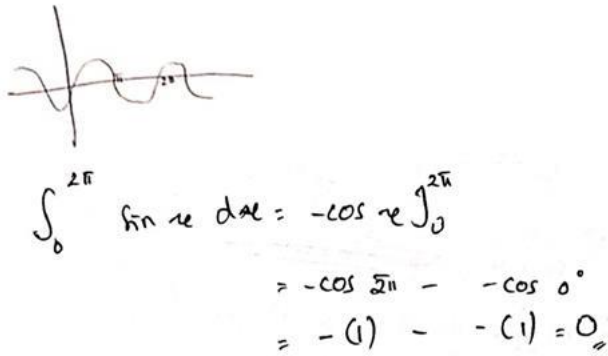 π 2π
∫₀^2π sin x dx = -cos x]₀^2π
= -cos 2π - -cos 0°
= -(1) - -(1) = 0